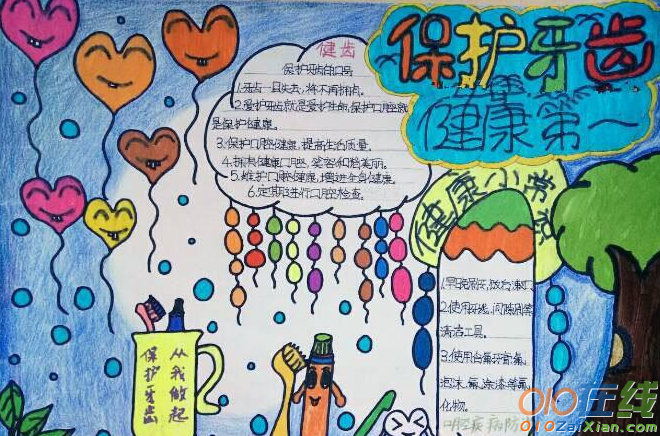 保护牙齿
健康第一
健齿
保护牙齿的口号
1.牙齿一旦失去,将不再拥有。
2.爱护牙齿就是爱护生命,保护口腔就
是保护健康。
3.保护口腔健康,提高生活质量。
4.拥有健康口腔,笑容和谐美丽。
5.维护口腔健康,增进全身健康。
6.定期进行口腔检查。
健康小常识
1.早晚刷牙,饭后漱口。
2.使用牙线、间隙刷等
清洁工具。
3.使用含氟牙膏、氟
泡沫、氟涂漆等氟
化物。
保护牙齿
从我做起
010在线
010ZaiXian.com